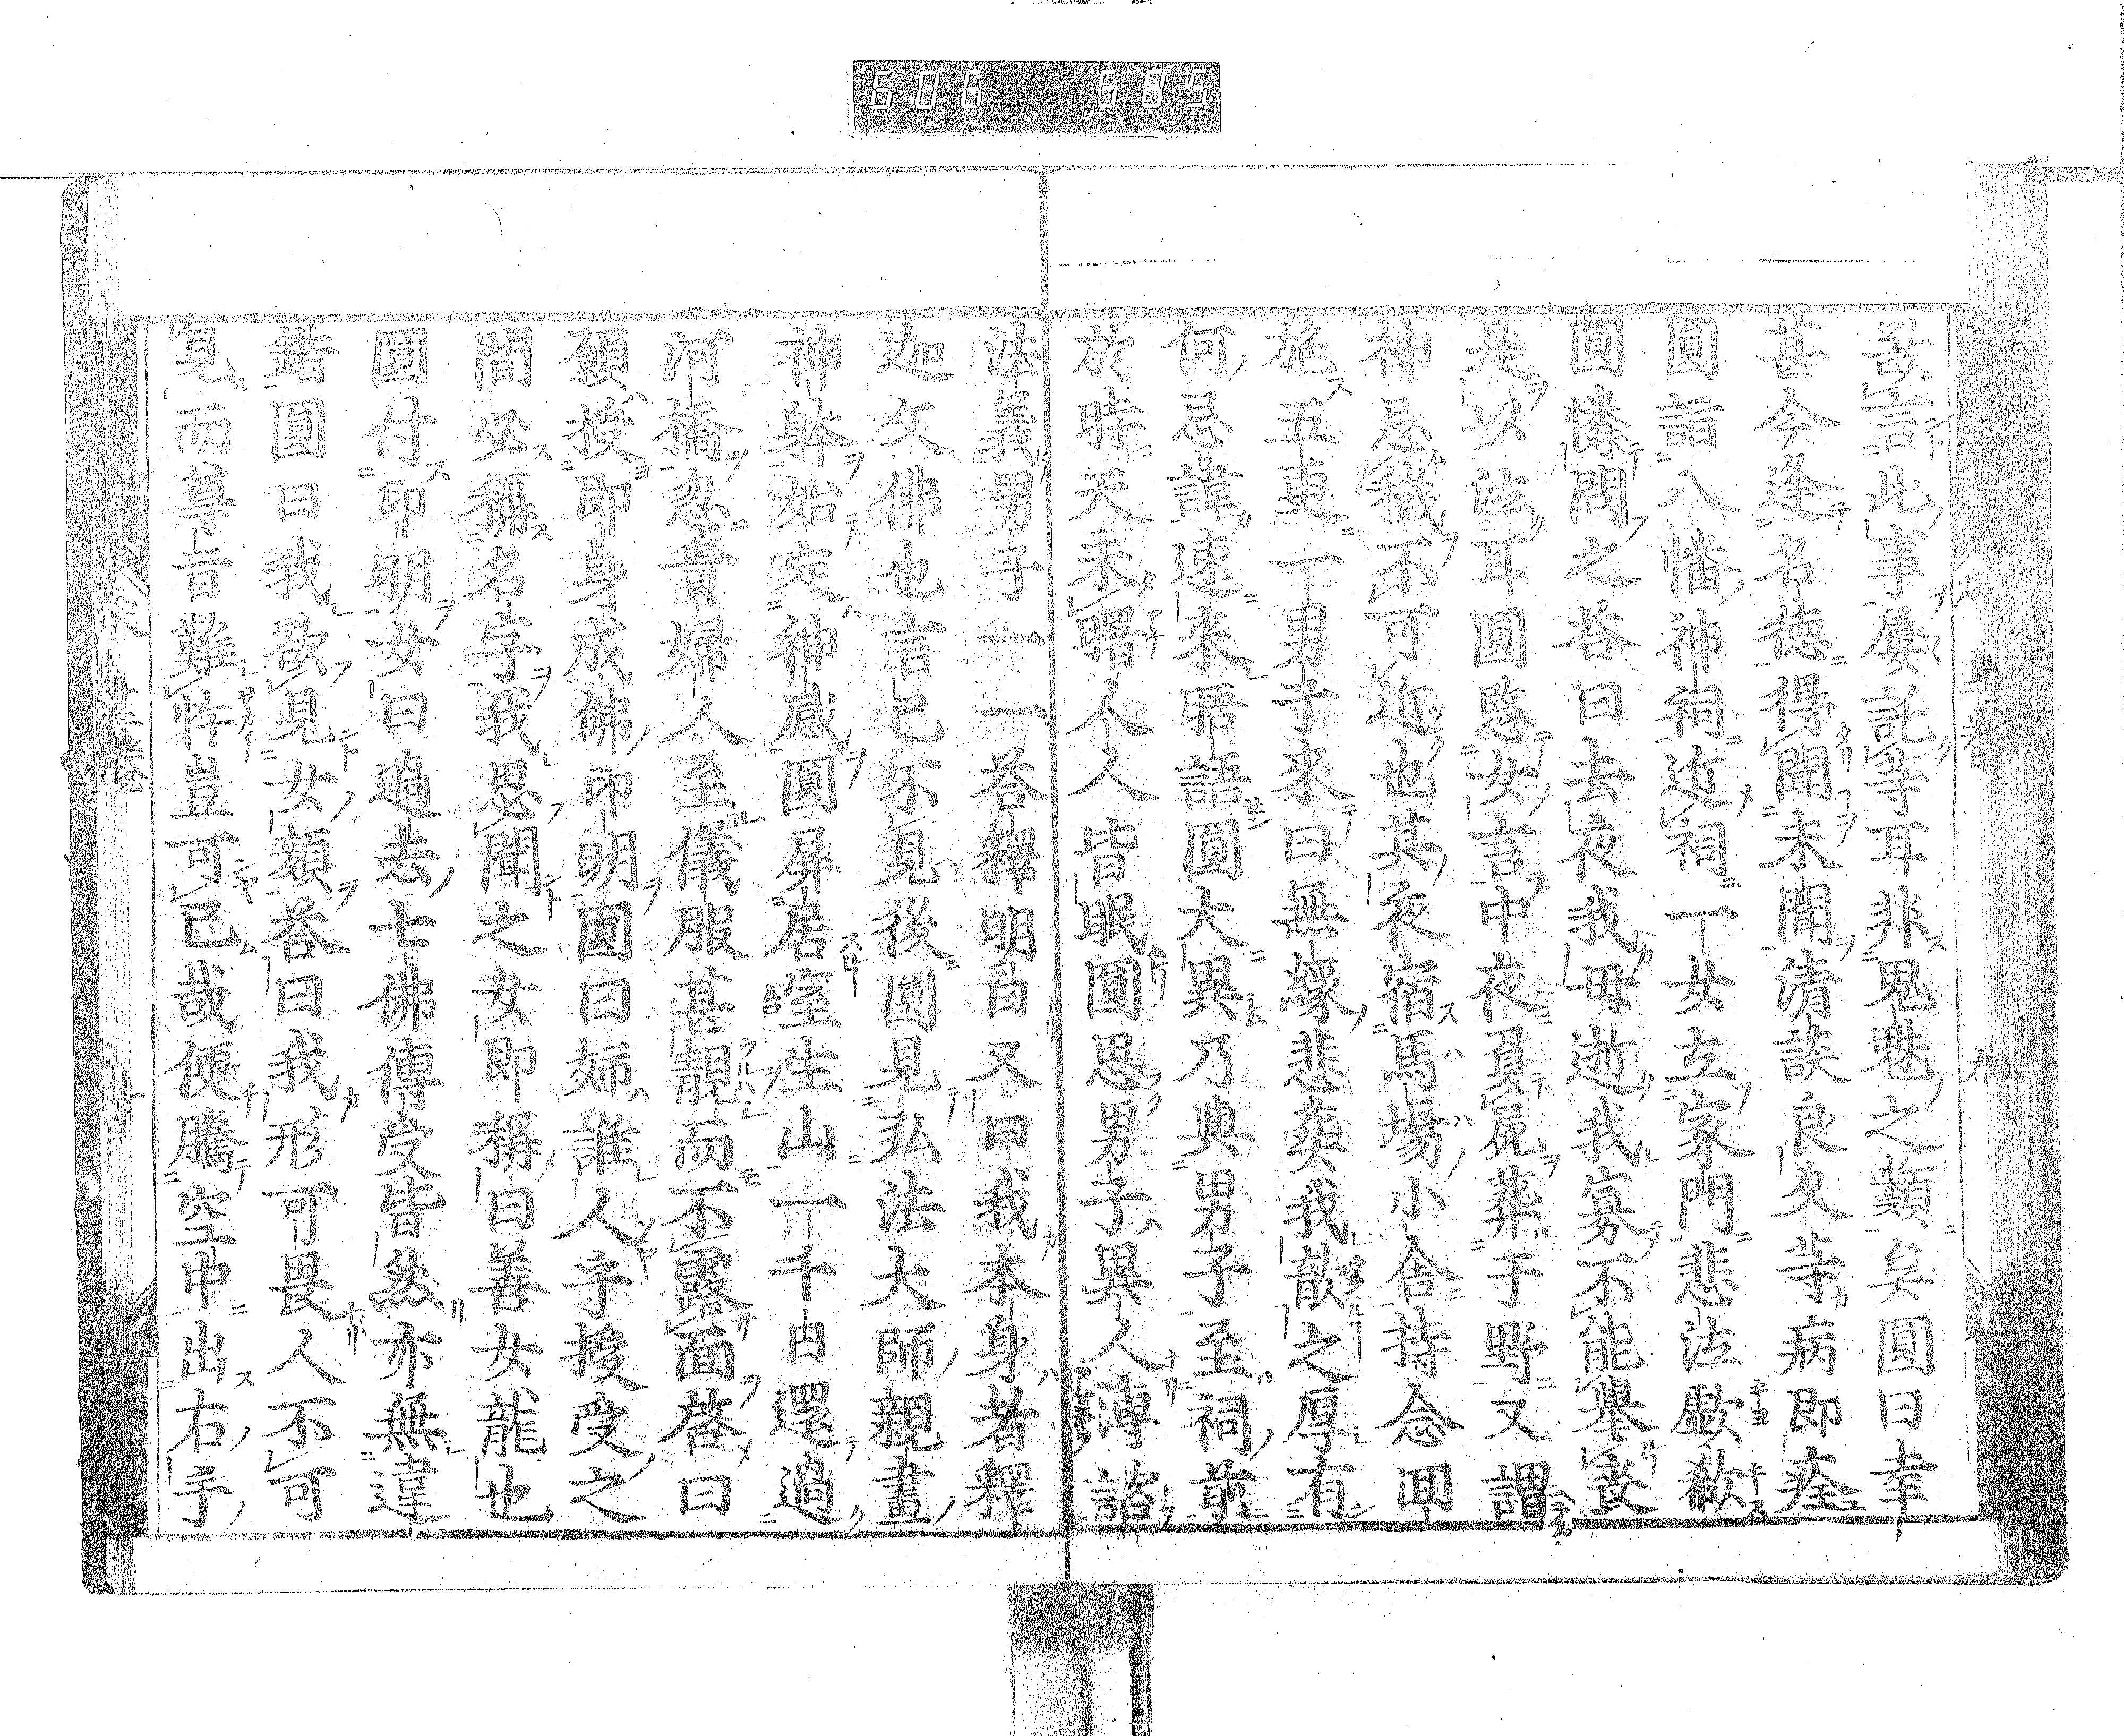 606 605
敢言此事屢託等耳非鬼魅之類矣圓曰幸
甚今逢名德得聞未聞清談良久等病即痊
圓詣八幡神祠近祠一女立家門悲泣歔欷
圓憐問之荅曰去夜我母逝我寡不能舉喪
是以泣耳圓愍女言中夜負屍葬于野又謂
神忌穢不可近也其夜宿馬場小舍持念回
施五更一男子來曰無緣悲葬我歆之厚有
何忌諱速来晤語圓大異乃與男子至祠前
於時天未曙人人皆眠圓思男子異人溥諮
法義男子一一荅釋明白又曰我本身者釋
迦文佛也言已不見後圓見弘法大師親畫
神躰始定神感圓屏居室生山一千日還過
河橋忽貴婦人至儀服甚靚而不露面啓曰
願授即身成佛印明圓曰姉誰人字授受之
間必稱名字我思聞之女即稱曰善女龍也
圓付印明女曰過去七佛傳受皆然亦無違
錯圓曰我欲見女顏荅曰我形可畏人不可
見而尊旨難忤豈可已哉便騰空中出右手